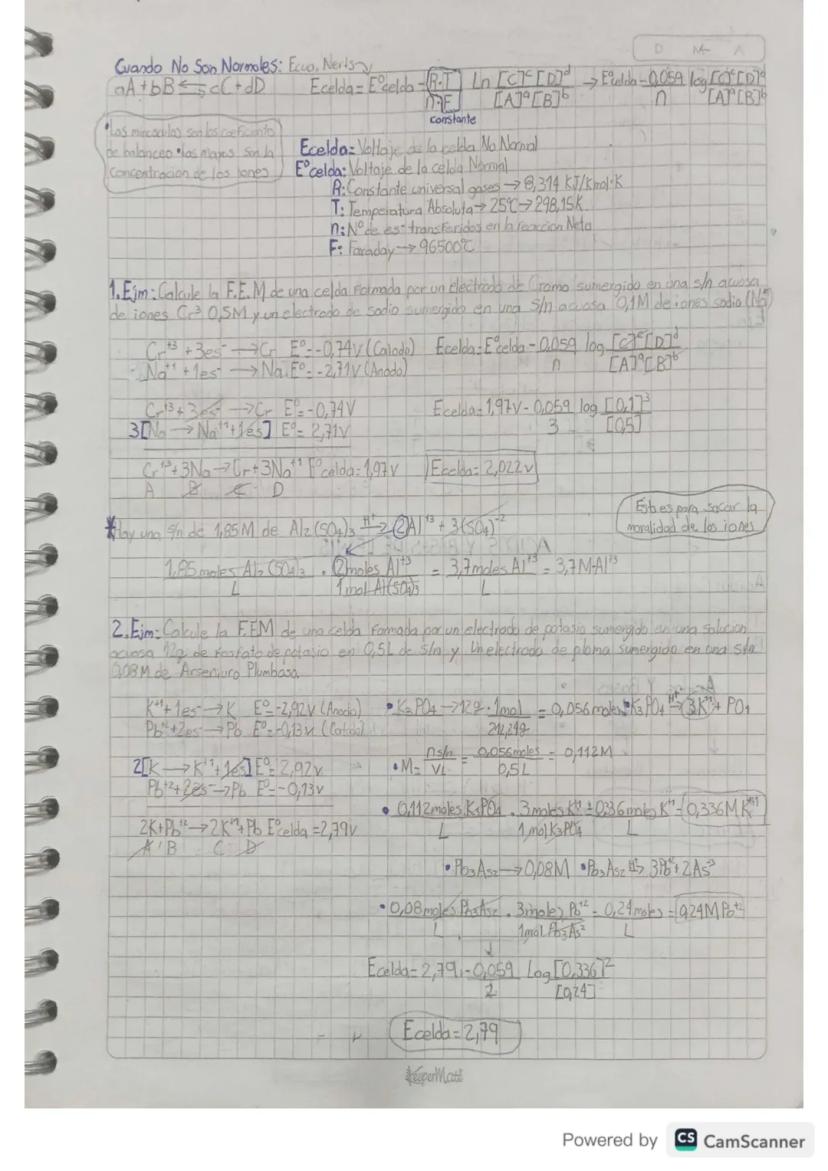 D M A
Cuando No Son Normales: Ecua. Nerts
aA+bB ⇆ cC+dD Ecelda= E°celda - R.T/n.F Ln [C]^c [D]^d/[A]^a [B]^b → E°celda - 0,059/n log [C]^c [D]^d/[A]^a [B]^b
constante
•Las minusculas son los coeficiente
de balanceo •las mayus son la
Concentracion de los iones
Ecelda= Voltaje de la celda No Normal
E°celda: Voltaje de la celda Normal
R: Constante universal gases → 8,314 KJ/Kmol·K
T: Temperatura Absoluta → 25°C → 298,15K
n: N° de es- transferidos en la reaccion Neta
F: Faraday → 96500°C
1. Ejm: Calcule la F.E.M de una celda formada por un electrodo de Cromo sumergido en una s/n acuosa
de iones Cr³ 0,5M y un electrodo de sodio sumergido en una s/n acuosa 0,1M de iones sodio (Na)
Cr⁺³ + 3es⁻ → Cr E°= -0,74V (Catodo) Ecelda= E°celda - 0,059/n log [C]^c [D]^d/[A]^a [B]^b
Na⁺¹ + 1es⁻ → Na E°= -2,71V (Anodo)
Cr⁺³ + 3es⁻ → Cr E°= -0,74V Ecelda= 1,97V - 0,059/3 log [0,1]³/[0,5]
3[Na → Na⁺¹ + 1es] E°= 2,71V
Cr⁺³ + 3Na → Cr + 3Na⁺¹ E°celda= 1,97V Ecelda= 2,022V
A B C D
*Hay una s/n de 1,85M de Al₂(SO₄)₃ →(H⁺²) 2Al⁺³ + 3(SO₄)⁻²
Est es para sacar la
moralidad de los iones
1,85 moles Al₂(SO₄)₃/L · 2moles Al⁺³/1 mol Al(SO₄)₃ = 3,7moles Al⁺³/L = 3,7M Al⁺³
2. Ejm: Calcule la F.EM de una celda formada por un electrodo de potasio sumergido en una solucion
acuosa 12g de fosfato de potasio en 0,5L de s/n y Un electrodo de plomo sumergido en una s/n
0,08M de Arseniuro Plumboso.
K⁺¹ + 1es⁻ → K E°= -2,92V (Anodo) •K₃PO₄ → 12g · 1mol/212,27g = 0,056moles •K₃PO₄ → 3K⁺¹ + PO₄
Pb⁺² + 2es → Pb E°= -0,13V (Catodo)
2[K → K⁺¹ + 1es] E°= 2,92V •M= ns/n/VL = 0,056moles/0,5L = 0,112M
Pb⁺² + 2es⁻ → Pb E°= -0,13V
•0,112moles K₃PO₄/L · 3moles K⁺¹/1mol K₃PO₄ = 0,336moles K⁺¹/L = 0,336M K⁺¹
2K + Pb⁺² → 2K⁺¹ + Pb E°celda = 2,79V
A B C D
•Pb₃As₂ → 0,08M •Pb₃As₂ → 3Pb⁺² + 2As⁻³
•0,08moles Pb₃As₂/L · 3moles Pb⁺²/1mol Pb₃As² = 0,24moles/L = 0,24M Pb⁺²
Ecelda= 2,79 - 0,059/2 Log [0,336]²/[0,24]
Ecelda= 2,79
Powered by CS CamScanner